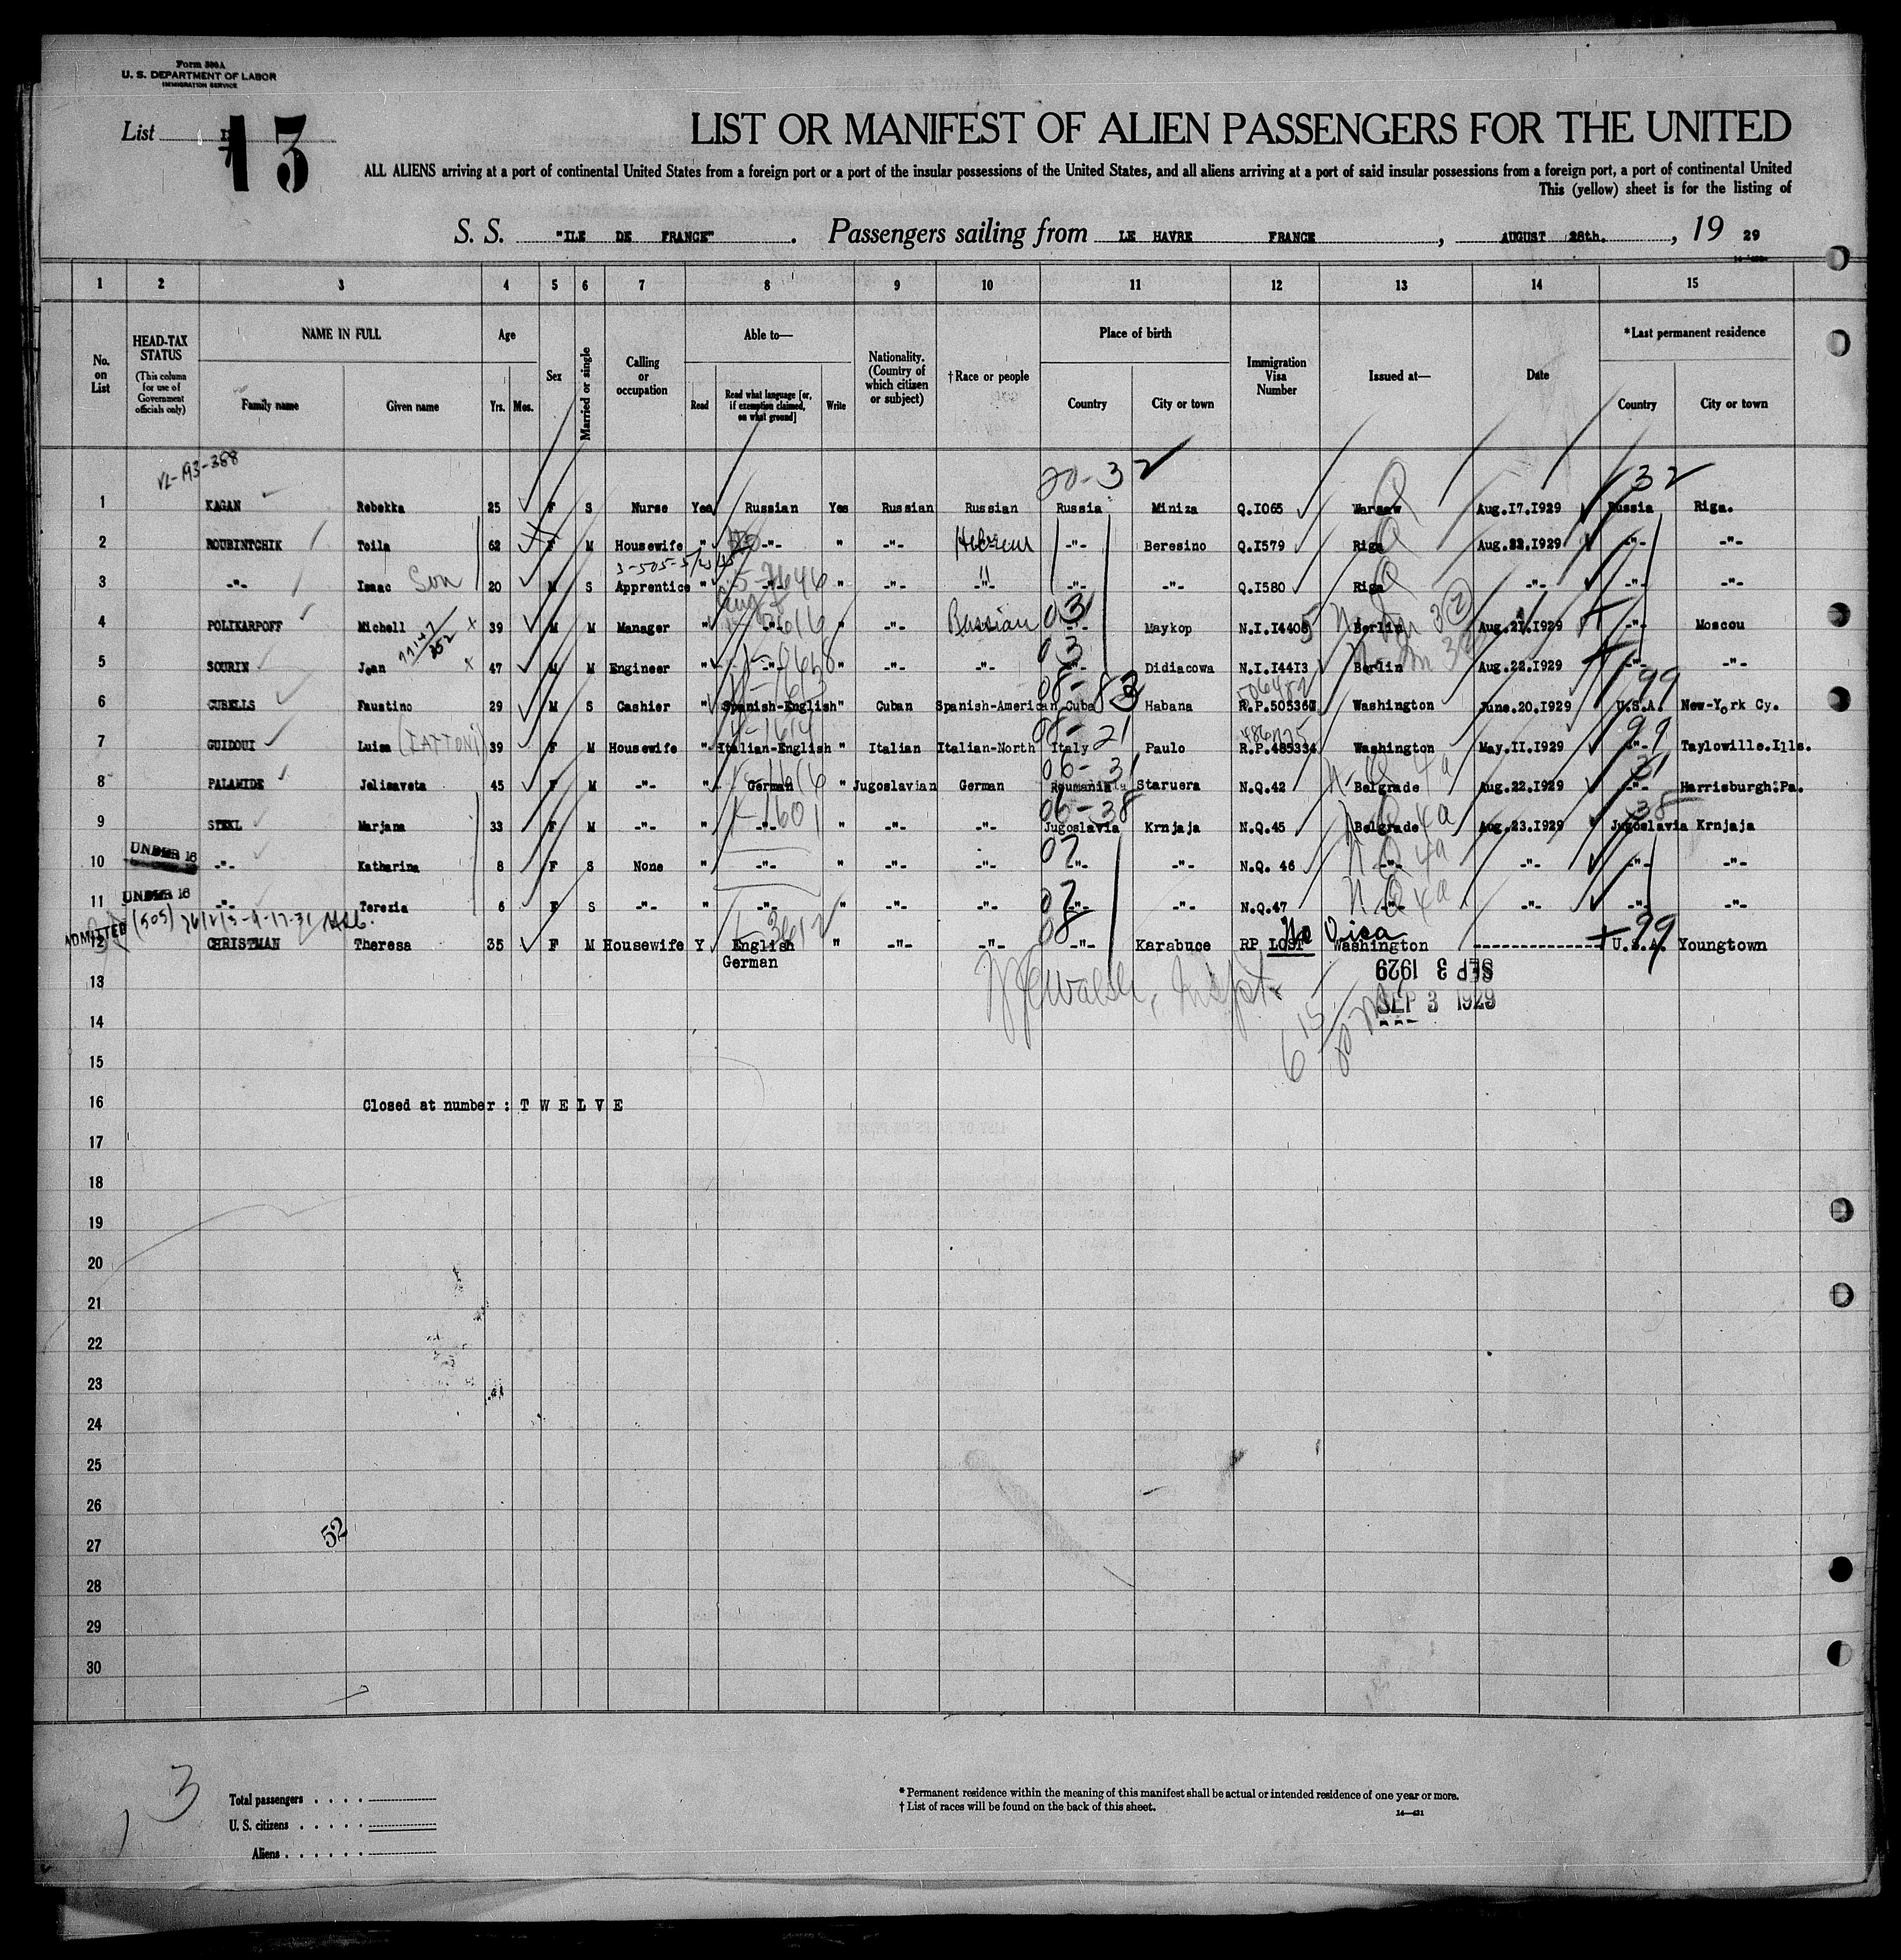 Form 500A
U. S. DEPARTMENT OF LABOR
IMMIGRATION SERVICE
List 13
LIST OR MANIFEST OF ALIEN PASSENGERS FOR THE UNITED
ALL ALIENS arriving at a port of continental United States from a foreign port or a port of the insular possessions of the United States, and all aliens arriving at a port of said insular possessions from a foreign port, a port of continental United
This (yellow) sheet is for the listing of
S. S. "ILE DE FRANCE". Passengers sailing from LE HAVRE FRANCE, AUGUST 28th., 19 29
1 2 3 4 5 6 7 8 9 10 11 12 13 14 15
No. on List
HEAD-TAX STATUS
(This column for use of Government officials only)
NAME IN FULL
Family name Given name
Age
Yrs. Mos.
Sex
Married or single
Calling or occupation
Able to—
Read
Read what language [or, if exemption claimed, on what ground]
Write
Nationality. (Country of which citizen or subject)
†Race or people
Place of birth
Country City or town
Immigration Visa Number
Issued at—
Date
*Last permanent residence
Country City or town
VL-193-358
20-32 32
1 KAGAN Rebekka 25 F S Nurse Yes Russian Yes Russian Russian Russia Miniza Q.I065 Warsaw Q Aug.I7.I929 Russia Riga.
2 ROUBINTCHIK Toila 62 F M Housewife " -"- " -"- Hebrew -"- Beresino Q.I579 Riga Q Aug.22.I929 -"- -"-
3 -"- Isaac Son 20 M S Apprentice " -"- " -"- -"- -"- -"- Q.I580 Riga Q -"- -"- -"-
4 POLIKARPOFF Michell x 39 M M Manager " -"- " -"- Russian 03 Maykop N.I.I4408 Berlin Aug.21.I929 -"- Moscou
5 SOURIN Jean x 47 M M Engineer " -"- " -"- -"- 03 -"- Didiacowa N.I.I4413 Berlin Aug.22.I929 -"- -"-
08-83 99
6 CUBELLS Faustino 29 M S Cashier " Spanish-English " Cuban Spanish-American Cuba Habana R.P.50536 Washington June.20.I929 U.S.A. New-York Cy.
08-21 99
7 GUIDOUI Luisa (ZATTONI) 39 F M Housewife " Italian-English " Italian Italian-North Italy Paulo R.P.485334 Washington May.II.I929 -"- Taylowille.Ills.
06-31 31
8 PALAMIDE Jelisaveta 45 F M -"- " German " Jugoslavian German Roumania Staruera N.Q.42 Belgrade Aug.22.I929 -"- Harrisburgh.Pa.
1-1601 06-38 38
9 STEKL Marjana 33 F M -"- " -"- " -"- -"- Jugoslavia Krnjaja N.Q.45 Belgrade Aug.23.I929 Jugoslavia Krnjaja
UNDER 16
10 -"- Katharina 8 F S None " -"- " -"- -"- 07 -"- -"- N.Q. 46 -"- -"- -"- -"-
UNDER 16
11 -"- Terezia 6 F S -"- " -"- " -"- -"- 07 -"- -"- N.Q.47 -"- -"- -"- -"-
ADMITTED
No Visa
12 CHRISTMAN Theresa 35 F M Housewife Y English " -"- -"- 08 -"- Karabuce RP LOST Washington ---------------- U.S.A. 99 Youngtown
German
13 SEP 3 1929
SEP 3 1929
14
15
16 Closed at number : T W E L V E
17
18
19
20
21
22
23
24
25
26
52
27
28
29
30
3
Total passengers . . . . .
U. S. citizens . . . . . .
Aliens . . . . . .
* Permanent residence within the meaning of this manifest shall be actual or intended residence of one year or more.
† List of races will be found on the back of this sheet.
14—421